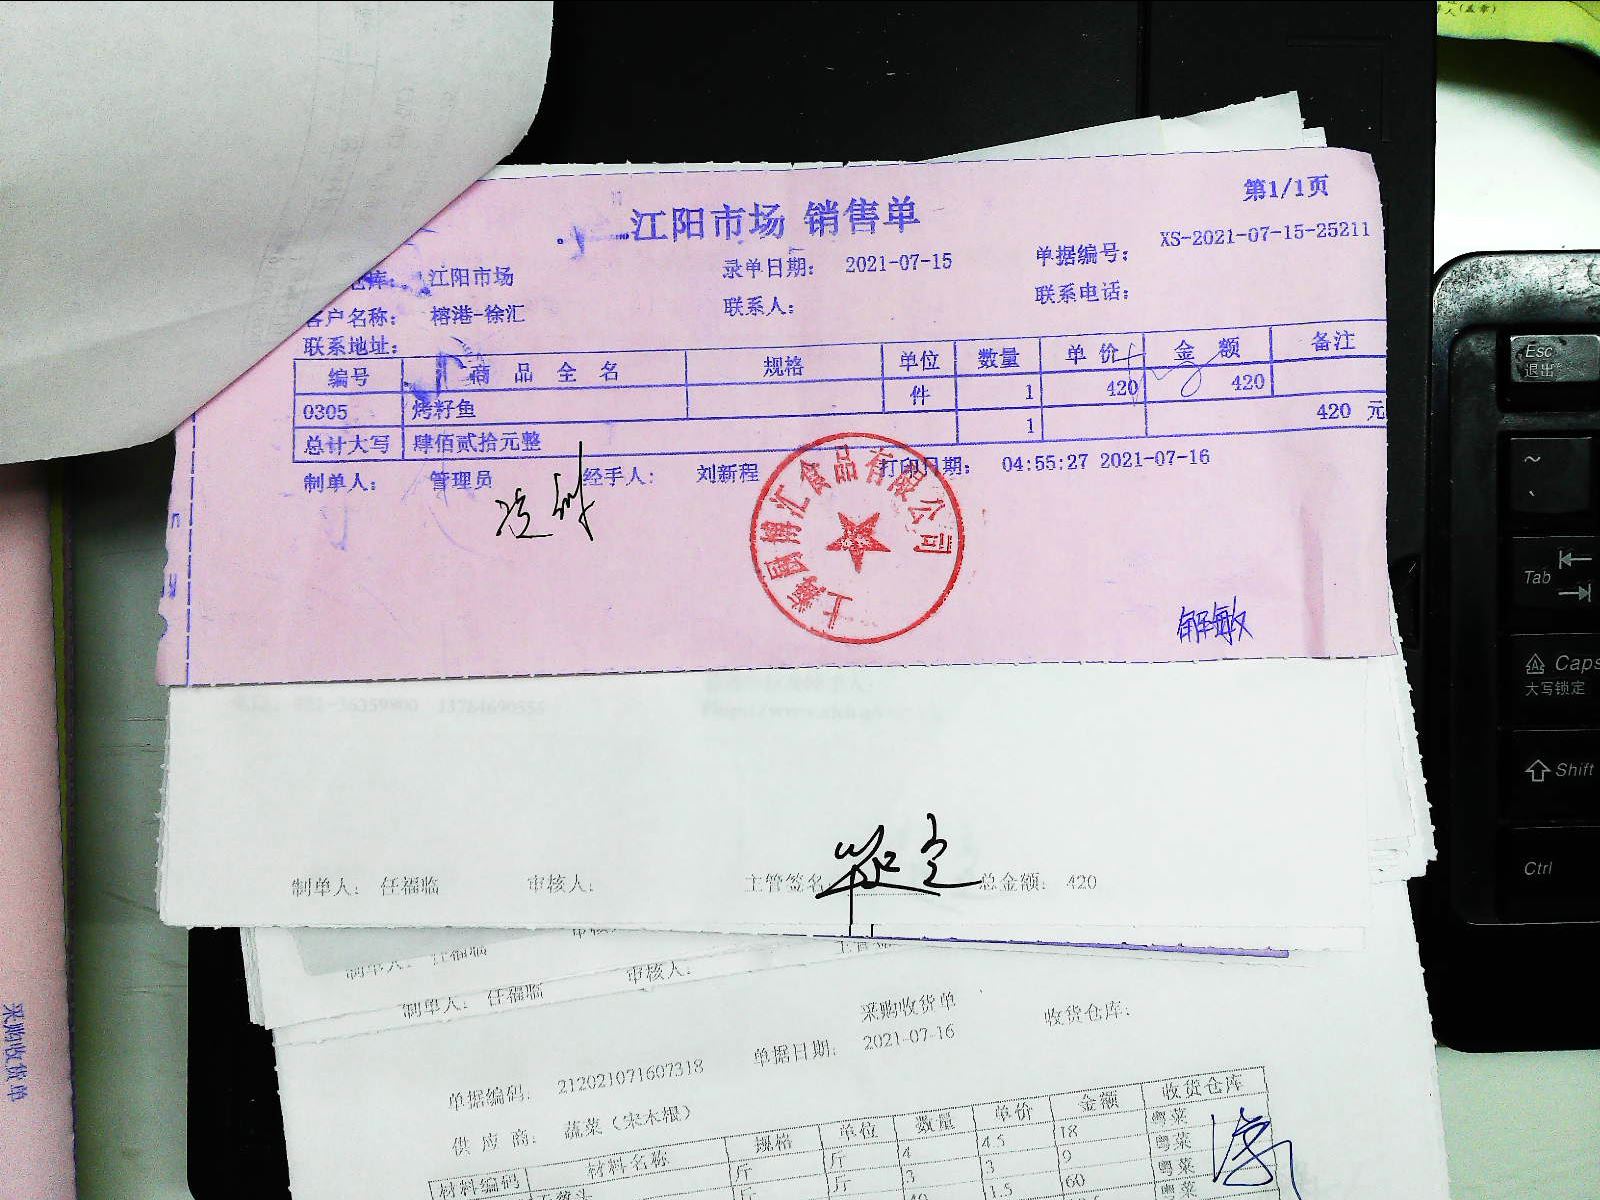 江阳市场 销售单
第1/1页
库: 江阳市场 录单日期: 2021-07-15 单据编号: XS-2021-07-15-25211
客户名称: 榕港-徐汇 联系人: 联系电话:
联系地址:
编号 商品全名 规格 单位 数量 单价 金额 备注
0305 烤籽鱼 件 1 420 420
总计大写 肆佰贰拾元整 1 420 元
制单人: 管理员 经手人: 刘新程 打印日期: 04:55:27 2021-07-16
上海厨博汇食品有限公司
解敏
制单人: 任福临 审核人: 主管签名 总金额: 420
制单人: 任福临 审核人:
制单人: 任福临 审核人:
采购收货单
单据编码: 212021071607318 单据日期: 2021-07-16 收货仓库:
供应商: 蔬菜(宋木根)
材料编码 材料名称 规格 单位 数量 单价 金额 收货仓库
斤 斤 4 4.5 18 粤菜
斤 斤 3 3 9 粤菜
1.5 60 粤菜
粤菜
采购收货单
Esc
退出
~
Tab
Caps
大写锁定
Shift
Ctrl